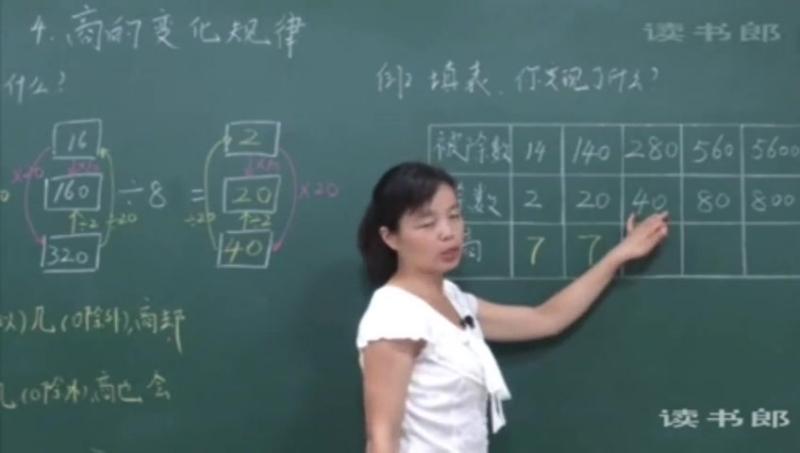 4.商的变化规律
读书郎
什么?
例2 填表,你发现了什么?
16
160 ÷8
320
=
2
20
40
×20
×20
÷20
÷20
÷2
÷2
被除数 14 140 280 560 5600
数 2 20 40 80 800
7 7
以)几(0除外),商却
几(0除外),商也会
读书郎